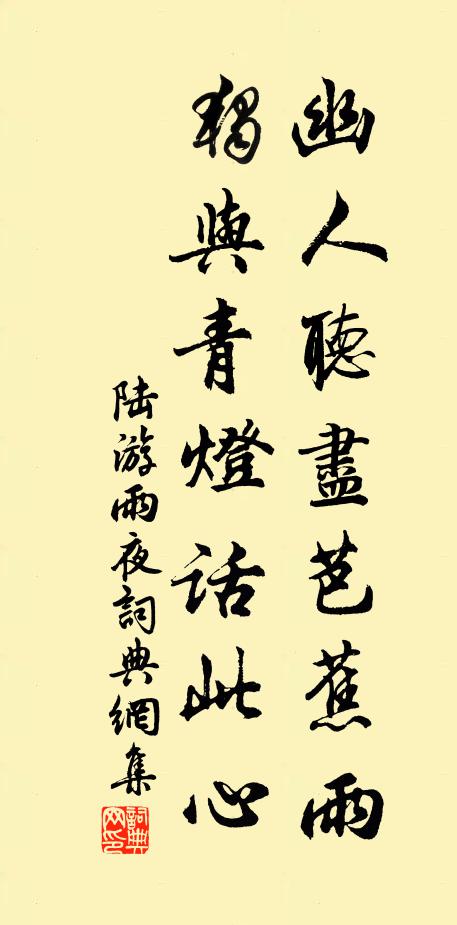 幽人聽盡芭蕉雨
獨與青燈話此心
陆游雨夜詞典網集
詞典网印